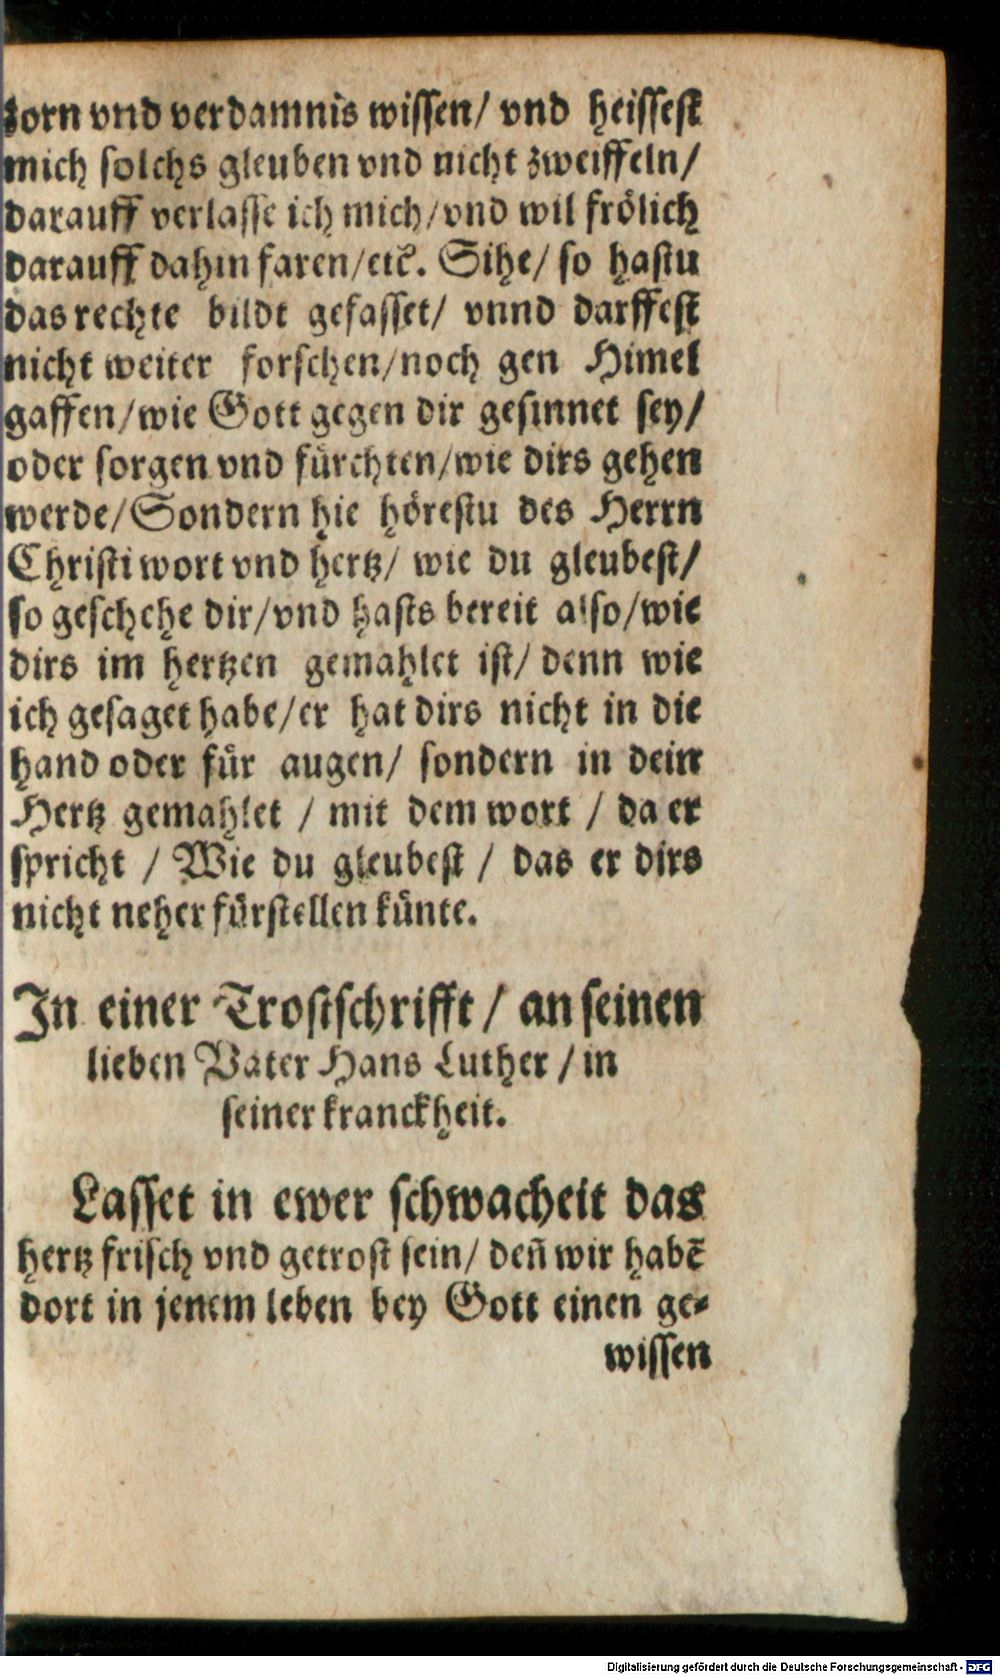 zorn vnd verdamnis wissen/ vnd heissest
mich solchs gleuben vnd nicht zweiffeln/
darauff verlasse ich mich/vnd wil frölich
darauff dahin faren/etc̃. Sihe/ so hastu
das rechte bildt gefasset/ vnnd darffest
nicht weiter forschen/noch gen Himel
gaffen/wie Gott gegen dir gesinnet sey/
oder sorgen vnd fürchten/wie dirs gehen
werde/Sondern hie hörestu des Herrn
Christi wort vnd hertz/ wie du gleubest/
so geschehe dir/vnd hasts bereit also/wie
dirs im hertzen gemahlet ist/ denn wie
ich gesaget habe/er hat dirs nicht in die
hand oder für augen/ sondern in dein
Hertz gemahlet / mit dem wort / da er
spricht / Wie du gleubest / das er dirs
nicht neher fürstellen künte.
In einer Trostschrifft / an seinen
lieben Vater Hans Luther / in
seiner kranckheit.
Lasset in ewer schwacheit das
hertz frisch vnd getrost sein/ deñ wir habẽ
dort in jenem leben bey Gott einen ge-
wissen
Digitalisierung gefördert durch die Deutsche Forschungsgemeinschaft - DFG